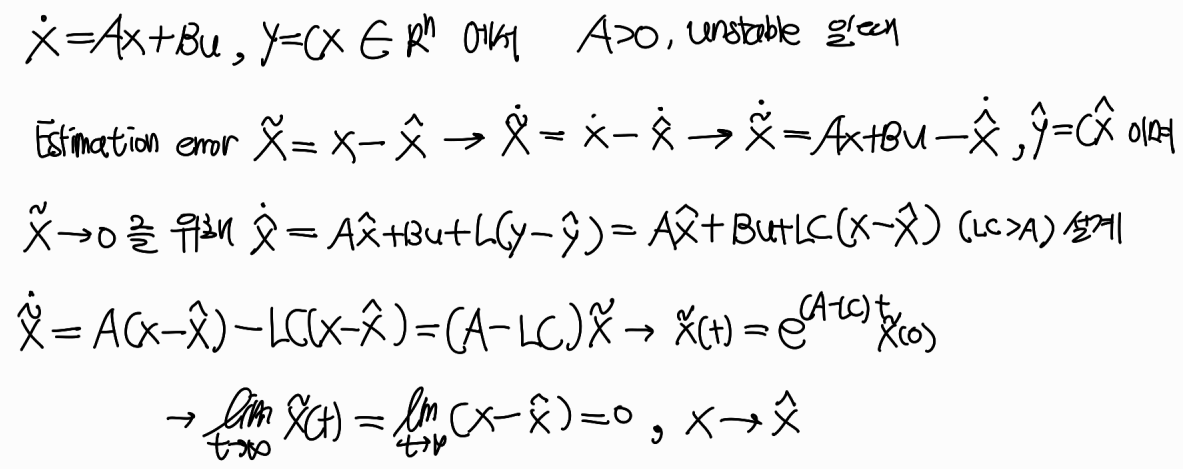 ẋ=Ax+Bu, y=Cx ∈ Rⁿ 에서 A>0, unstable 일때
Estimation error x̃ = x - x̂ → x̃̇ = ẋ - x̂̇ → x̃̇ = Ax+Bu - x̂̇, ŷ=Cx̂ 이며
x̃→0 를 위해 x̂̇ = Ax̂+Bu+L(y-ŷ) = Ax̂+Bu+LC(x-x̂) (LC>A) 설계
x̃̇ = A(x-x̂)-LC(x-x̂)=(A-LC)x̃ → x̃(t) = e^{(A-LC)t} x̃(0)
→ lim_{t→∞} x̃(t) = lim_{t→∞} (x-x̂)=0, x→x̂